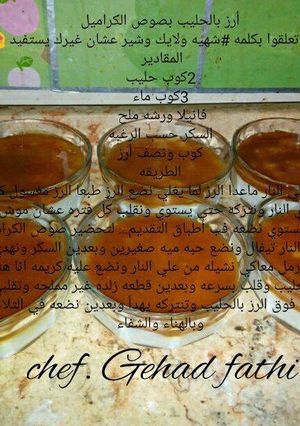 أرز بالحليب بصوص الكراميل
تعلقوا بكلمه #شهيه ولايك وشير عشان غيرك يستفيد
المقادير
2كوب حليب
3كوب ماء
ڤانيلا ورشه ملح
السكر حسب الرغبه
كوب ونصف أرز
الطريقه
النار ماعدا الرز لما يغلي نضع الرز طبعا الرز مغسول
النار ونتركه حتي يستوي ونقلب كل فتره عشان
يستوي نضعه في أطباق التقديم.. لتحضير صوص
النار تيفال ونضع حبه ميه صغيرين وبعدين السكر
معاكي نشيله من علي النار ونضع عليه كريمه
وقلب بسرعه وبعدين قطعه زبده غير مملحه
فوق الرز بالحليب ونتركه يهدأ وبعدين نضعه في
وبالهناء والشفاء
chef. Gehad fathi